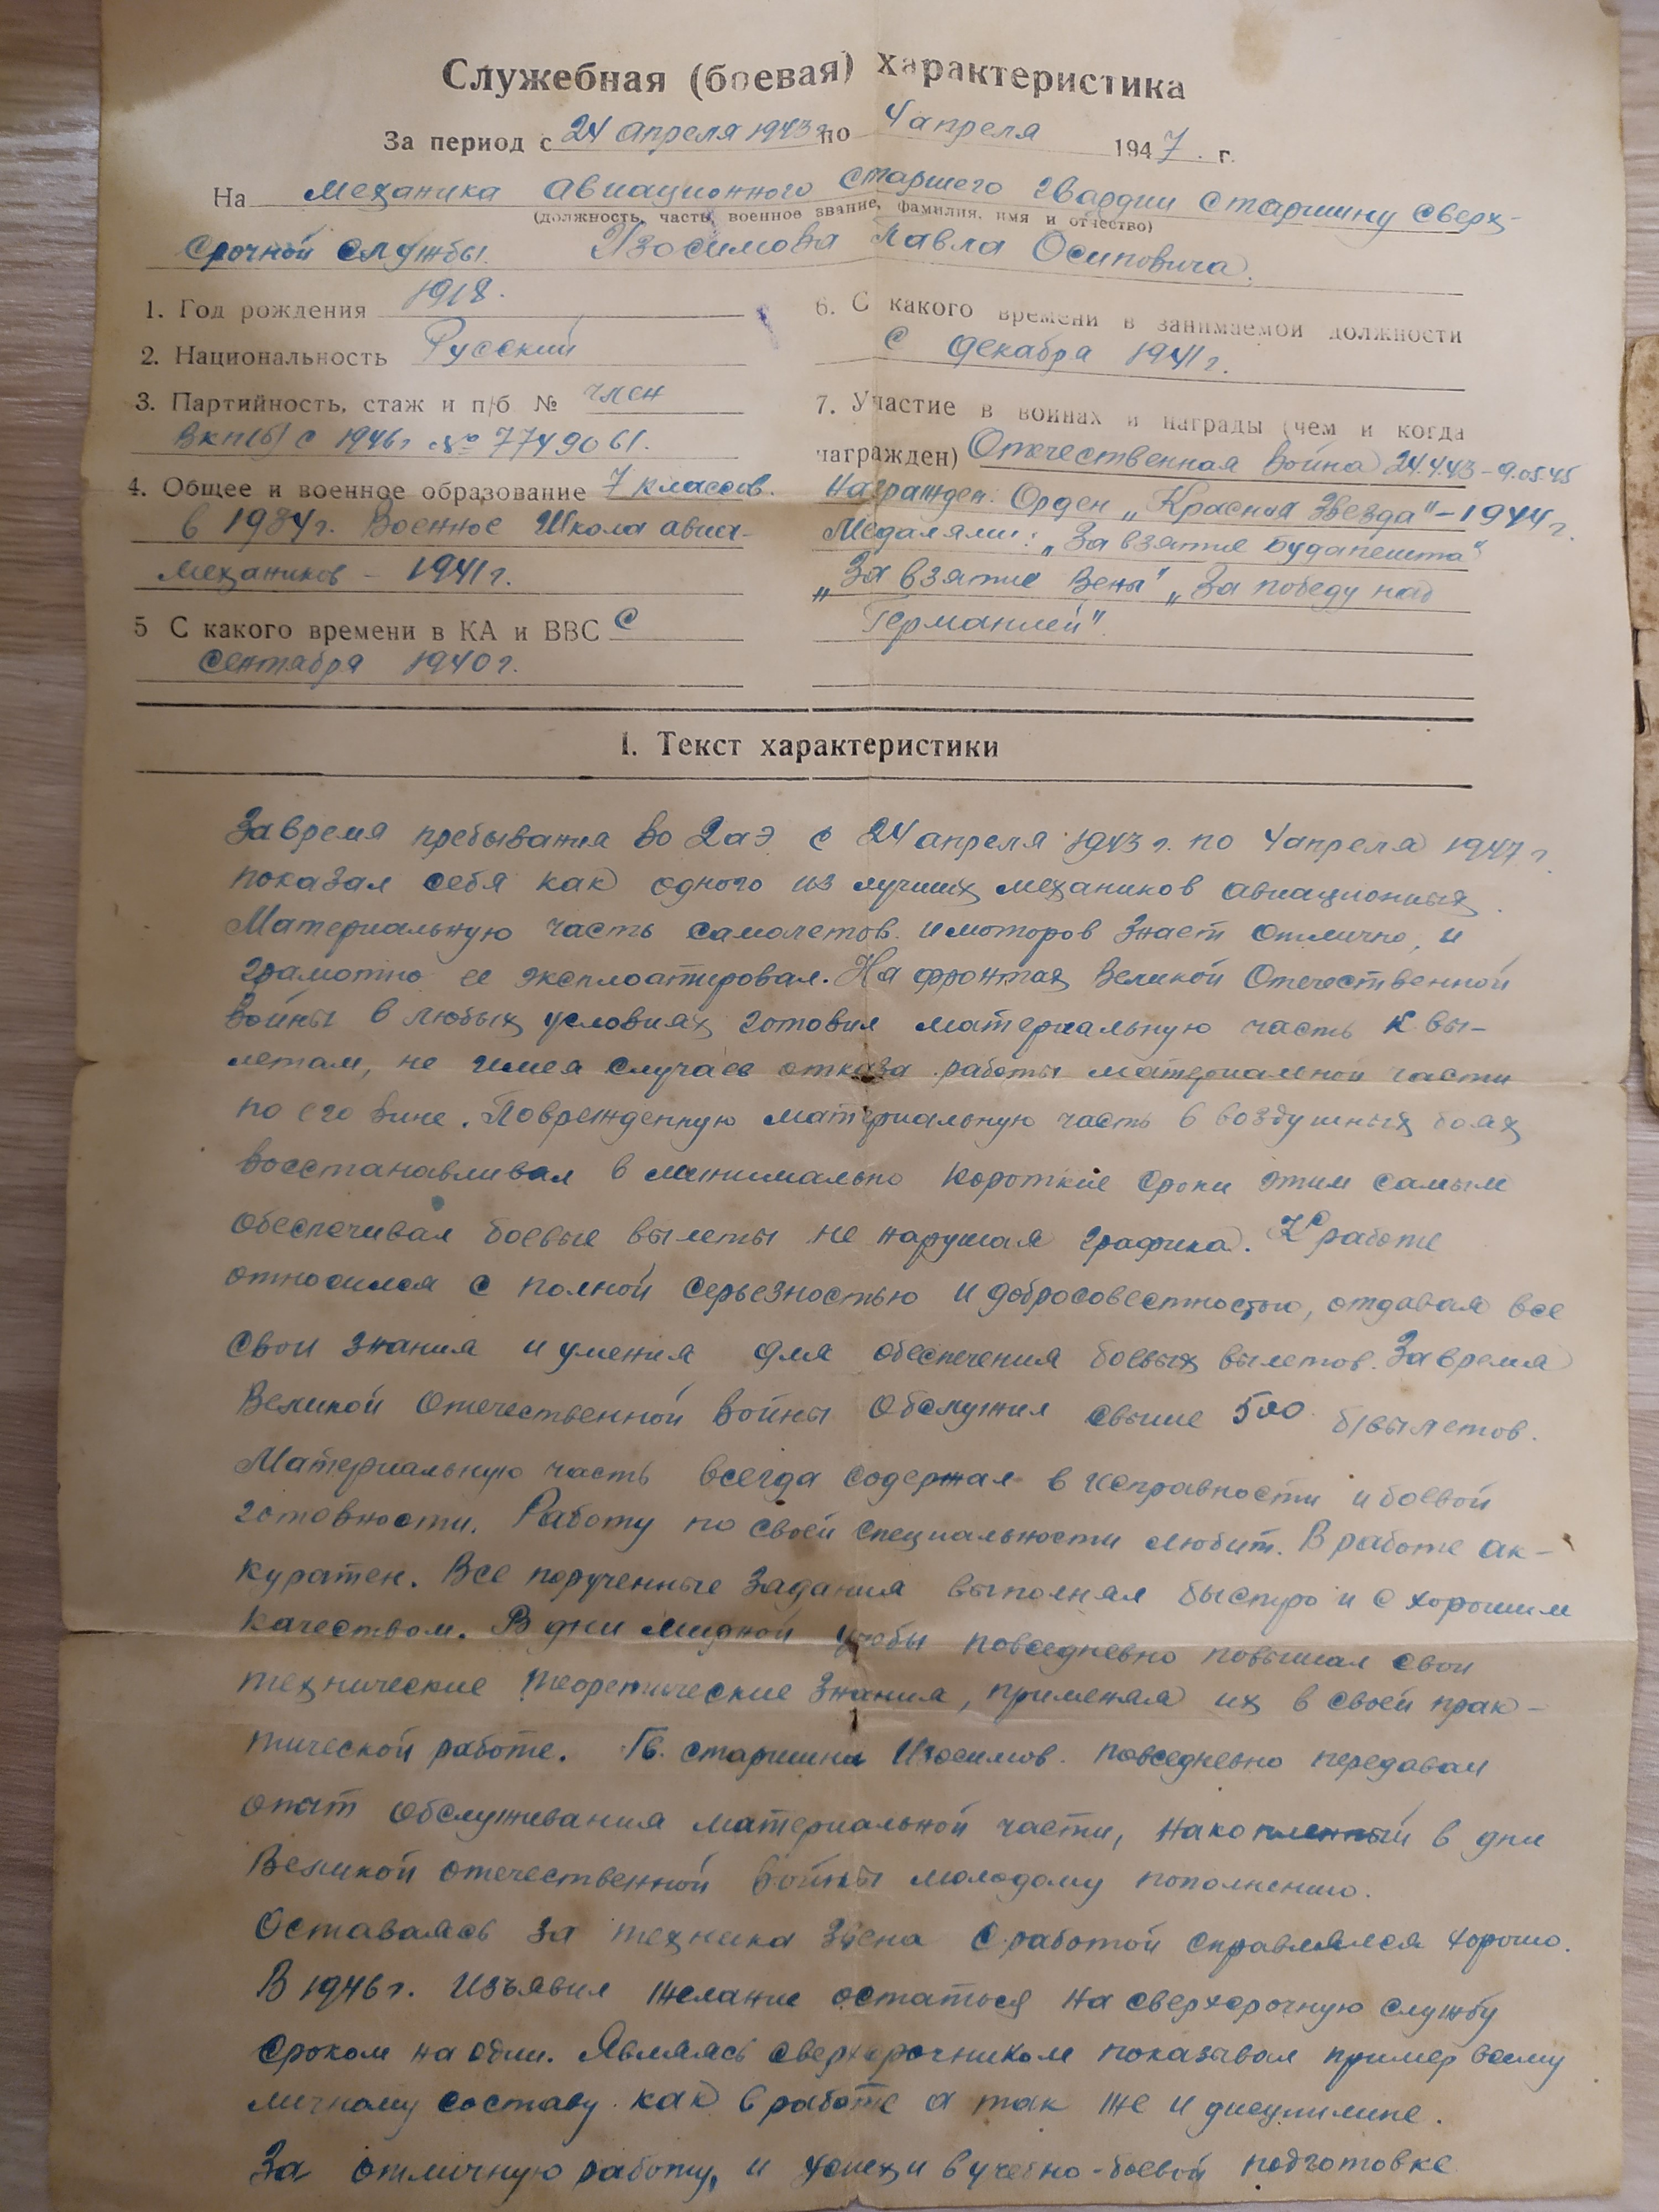 Служебная (боевая) характеристика
За период с 24 апреля 1943 г. по 4 апреля 1947 г.
На механика авиационного старшего гвардии старшину сверх-
(должность, часть, военное звание, фамилия, имя и отчество)
срочной службы. Изосимова Павла Осиповича.
1. Год рождения 1918.
2. Национальность Русский
3. Партийность, стаж и п/б № член
ВКП(б) с 1946 г. № 7749061.
4. Общее и военное образование 7 классов.
в 1934 г. Военное Школа авиа-
механиков – 1941 г.
5 С какого времени в КА и ВВС с
сентября 1940 г.
6. С какого времени в занимаемой должности
с декабря 1941 г.
7. Участие в войнах и награды (чем и когда
награжден) Отечественная война 24.4.43 – 9.05.45
Награжден: Орден „Красная Звезда" – 1944 г.
Медалями: „За взятие Будапешта"
„За взятие Вены" „За победу над
Германией".
I. Текст характеристики
За время пребывания во 2 аэ с 24 апреля 1943 г. по 4 апреля 1947 г.
показал себя как одного из лучших механиков авиационных.
Материальную часть самолетов и моторов знает отлично, и
грамотно ее эксплоатировал. На фронтах Великой Отечественной
войны в любых условиях готовил материальную часть к вы-
летам, не имея случаев отказа работы материальной части
по его вине. Поврежденную материальную часть в воздушных боях
восстанавливал в минимально короткие сроки этим самым
обеспечивал боевые вылеты не нарушая графика. К работе
относился с полной серьезностью и добросовестностью, отдавая все
свои знания и умения для обеспечения боевых вылетов. За время
Великой Отечественной войны обслужил свыше 500 б/вылетов.
Материальную часть всегда содержал в исправности и боевой
готовности. Работу по своей специальности любит. В работе ак-
куратен. Все порученные задания выполнял быстро и с хорошим
качеством. В дни мирной учебы повседневно повышал свои
технические теоретические знания, применяя их в своей прак-
тической работе. Гв. старшина Изосимов повседневно передавал
опыт обслуживания материальной части, накопленный в дни
Великой отечественной войны молодому пополнению.
Оставаясь за техника звена с работой справлялся хорошо.
В 1946 г. изъявил желание остаться на сверхсрочную службу
сроком на один. Являясь сверхсрочником показывал пример всему
личному составу как в работе а так же и дисциплине.
За отличную работу, и успехи в учебно-боевой подготовке